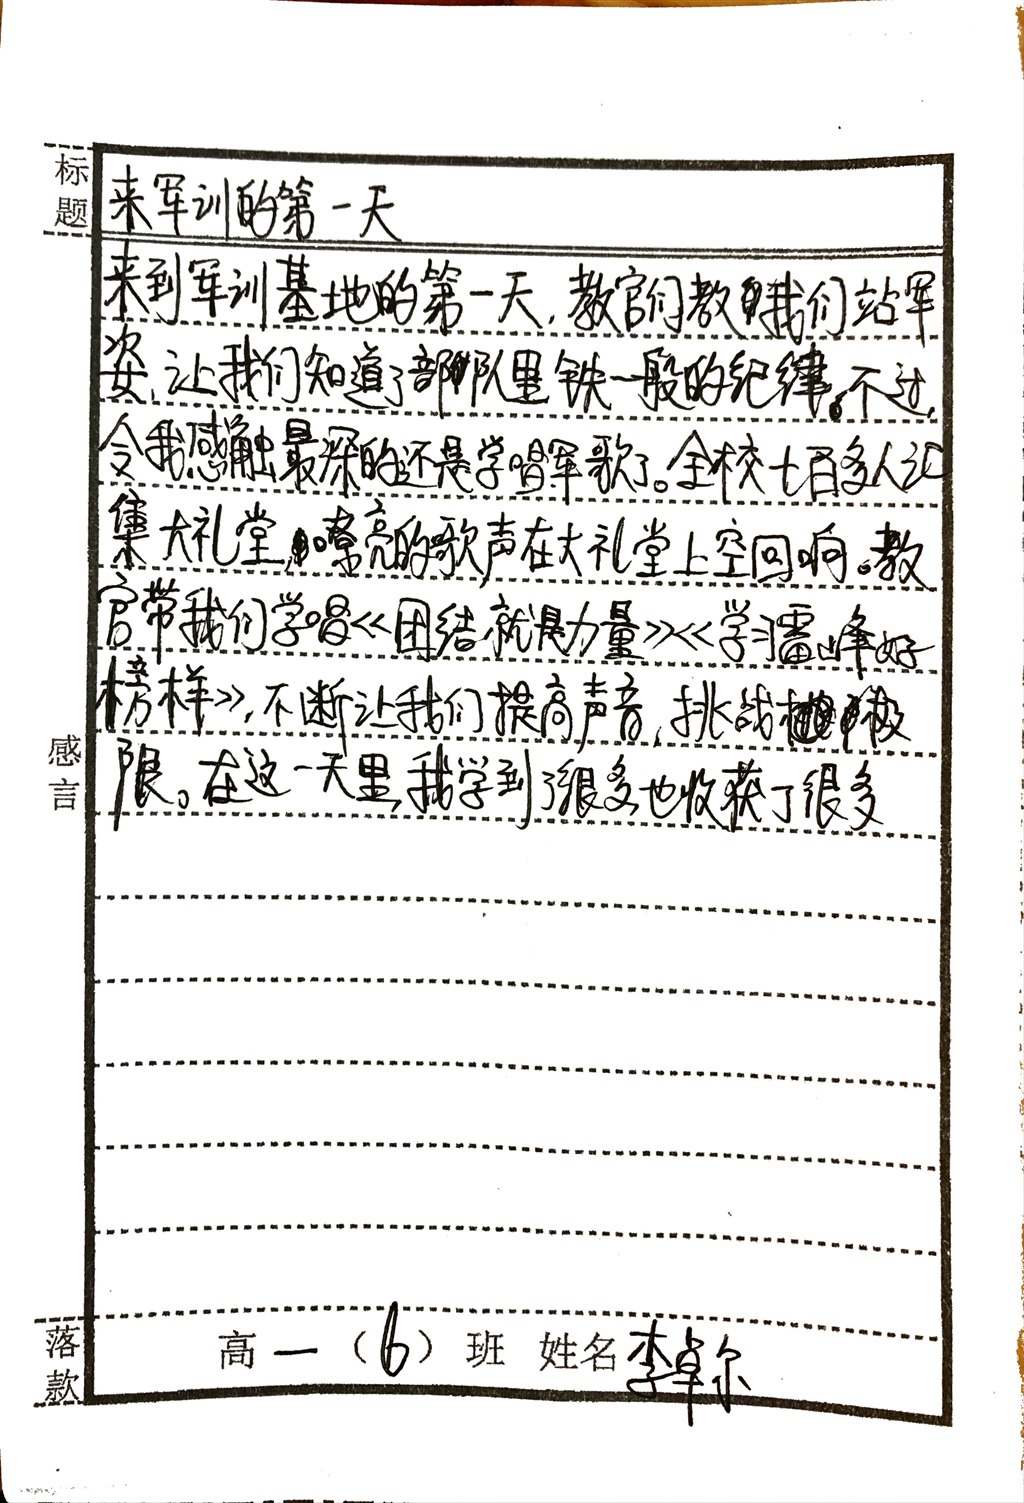 标题
来军训的第一天
来到军训基地的第一天,教官们教我们站军
姿,让我们知道了部队里铁一般的纪律。不过,
令我感触最深的还是学唱军歌了。全校七百多人汇
集大礼堂,嘹亮的歌声在大礼堂上空回响。教
官带我们学唱《团结就是力量》《学习雷峰好
榜样》,不断让我们提高声音,挑战极
限。在这一天里,我学到了很多,也收获了很多
感言
落款
高一(6)班 姓名李卓尔